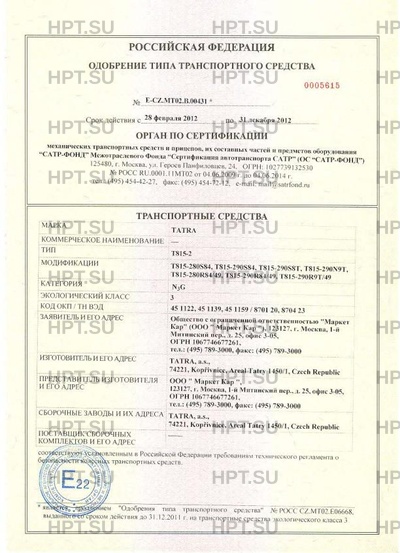 РОССИЙСКАЯ ФЕДЕРАЦИЯ
ОДОБРЕНИЕ ТИПА ТРАНСПОРТНОГО СРЕДСТВА
0005615
№ E-CZ.MT02.B.00431 *
Срок действия с 28 февраля 2012 по 31 декабря 2012
ОРГАН ПО СЕРТИФИКАЦИИ
механических транспортных средств и прицепов, их составных частей и предметов оборудования
"САТР-ФОНД" Межотраслевого Фонда "Сертификация автотранспорта САТР" (ОС "САТР-ФОНД")
125480, г. Москва, ул. Героев Панфиловцев, 24, ОГРН: 1027739132530
№ РОСС RU.0001.11МТ02 от 04.06.2009 г. до 04.06.2014 г.
тел.: (495) 454-42-27, факс: (495) 454-72-12, e-mail: mail@satrfond.ru
ТРАНСПОРТНЫЕ СРЕДСТВА
МАРКА TATRA
КОММЕРЧЕСКОЕ НАИМЕНОВАНИЕ —
ТИП T815-2
МОДИФИКАЦИИ T815-280S84, T815-290S84, T815-290S8T, T815-290N9T,
T815-280R84/49, T815-290R84/49, T815-290R9T/49
КАТЕГОРИЯ N3G
ЭКОЛОГИЧЕСКИЙ КЛАСС 3
КОД ОКП / ТН ВЭД 45 1122, 45 1139, 45 1159 / 8701 20, 8704 23
ЗАЯВИТЕЛЬ И ЕГО АДРЕС Общество с ограниченной ответственностью "Маркет
Кар" (ООО " Маркет Кар "), 123127, г. Москва, 1-й
Митинский пер., д. 25, офис 3-05,
ОГРН 1067746677261,
тел.: (495) 789-3000, факс: (495) 789-3000
ИЗГОТОВИТЕЛЬ И ЕГО АДРЕС TATRA, a.s.,
74221, Kopřivnice, Areal Tatry 1450/1, Czech Republic
ПРЕДСТАВИТЕЛЬ ИЗГОТОВИТЕЛЯ И ЕГО АДРЕС ООО " Маркет Кар "
123127, г. Москва, 1-й Митинский пер., д. 25, офис 3-05,
ОГРН 1067746677261,
тел.: (495) 789-3000, факс: (495) 789-3000
СБОРОЧНЫЕ ЗАВОДЫ И ИХ АДРЕСА TATRA, a.s.,
74221, Kopřivnice, Areal Tatry 1450/1, Czech Republic
ПОСТАВЩИК СБОРОЧНЫХ КОМПЛЕКТОВ И ЕГО АДРЕС —
соответствуют установленным в Российской Федерации требованиям технического регламента о
безопасности колесных транспортных средств.
E22
взамен "Одобрения типа транспортного средства" № РОСС CZ.MT02.E06668,
выданного со сроком действия до 31.12.2011 г. на транспортные средства экологического класса 3
HPT.SU